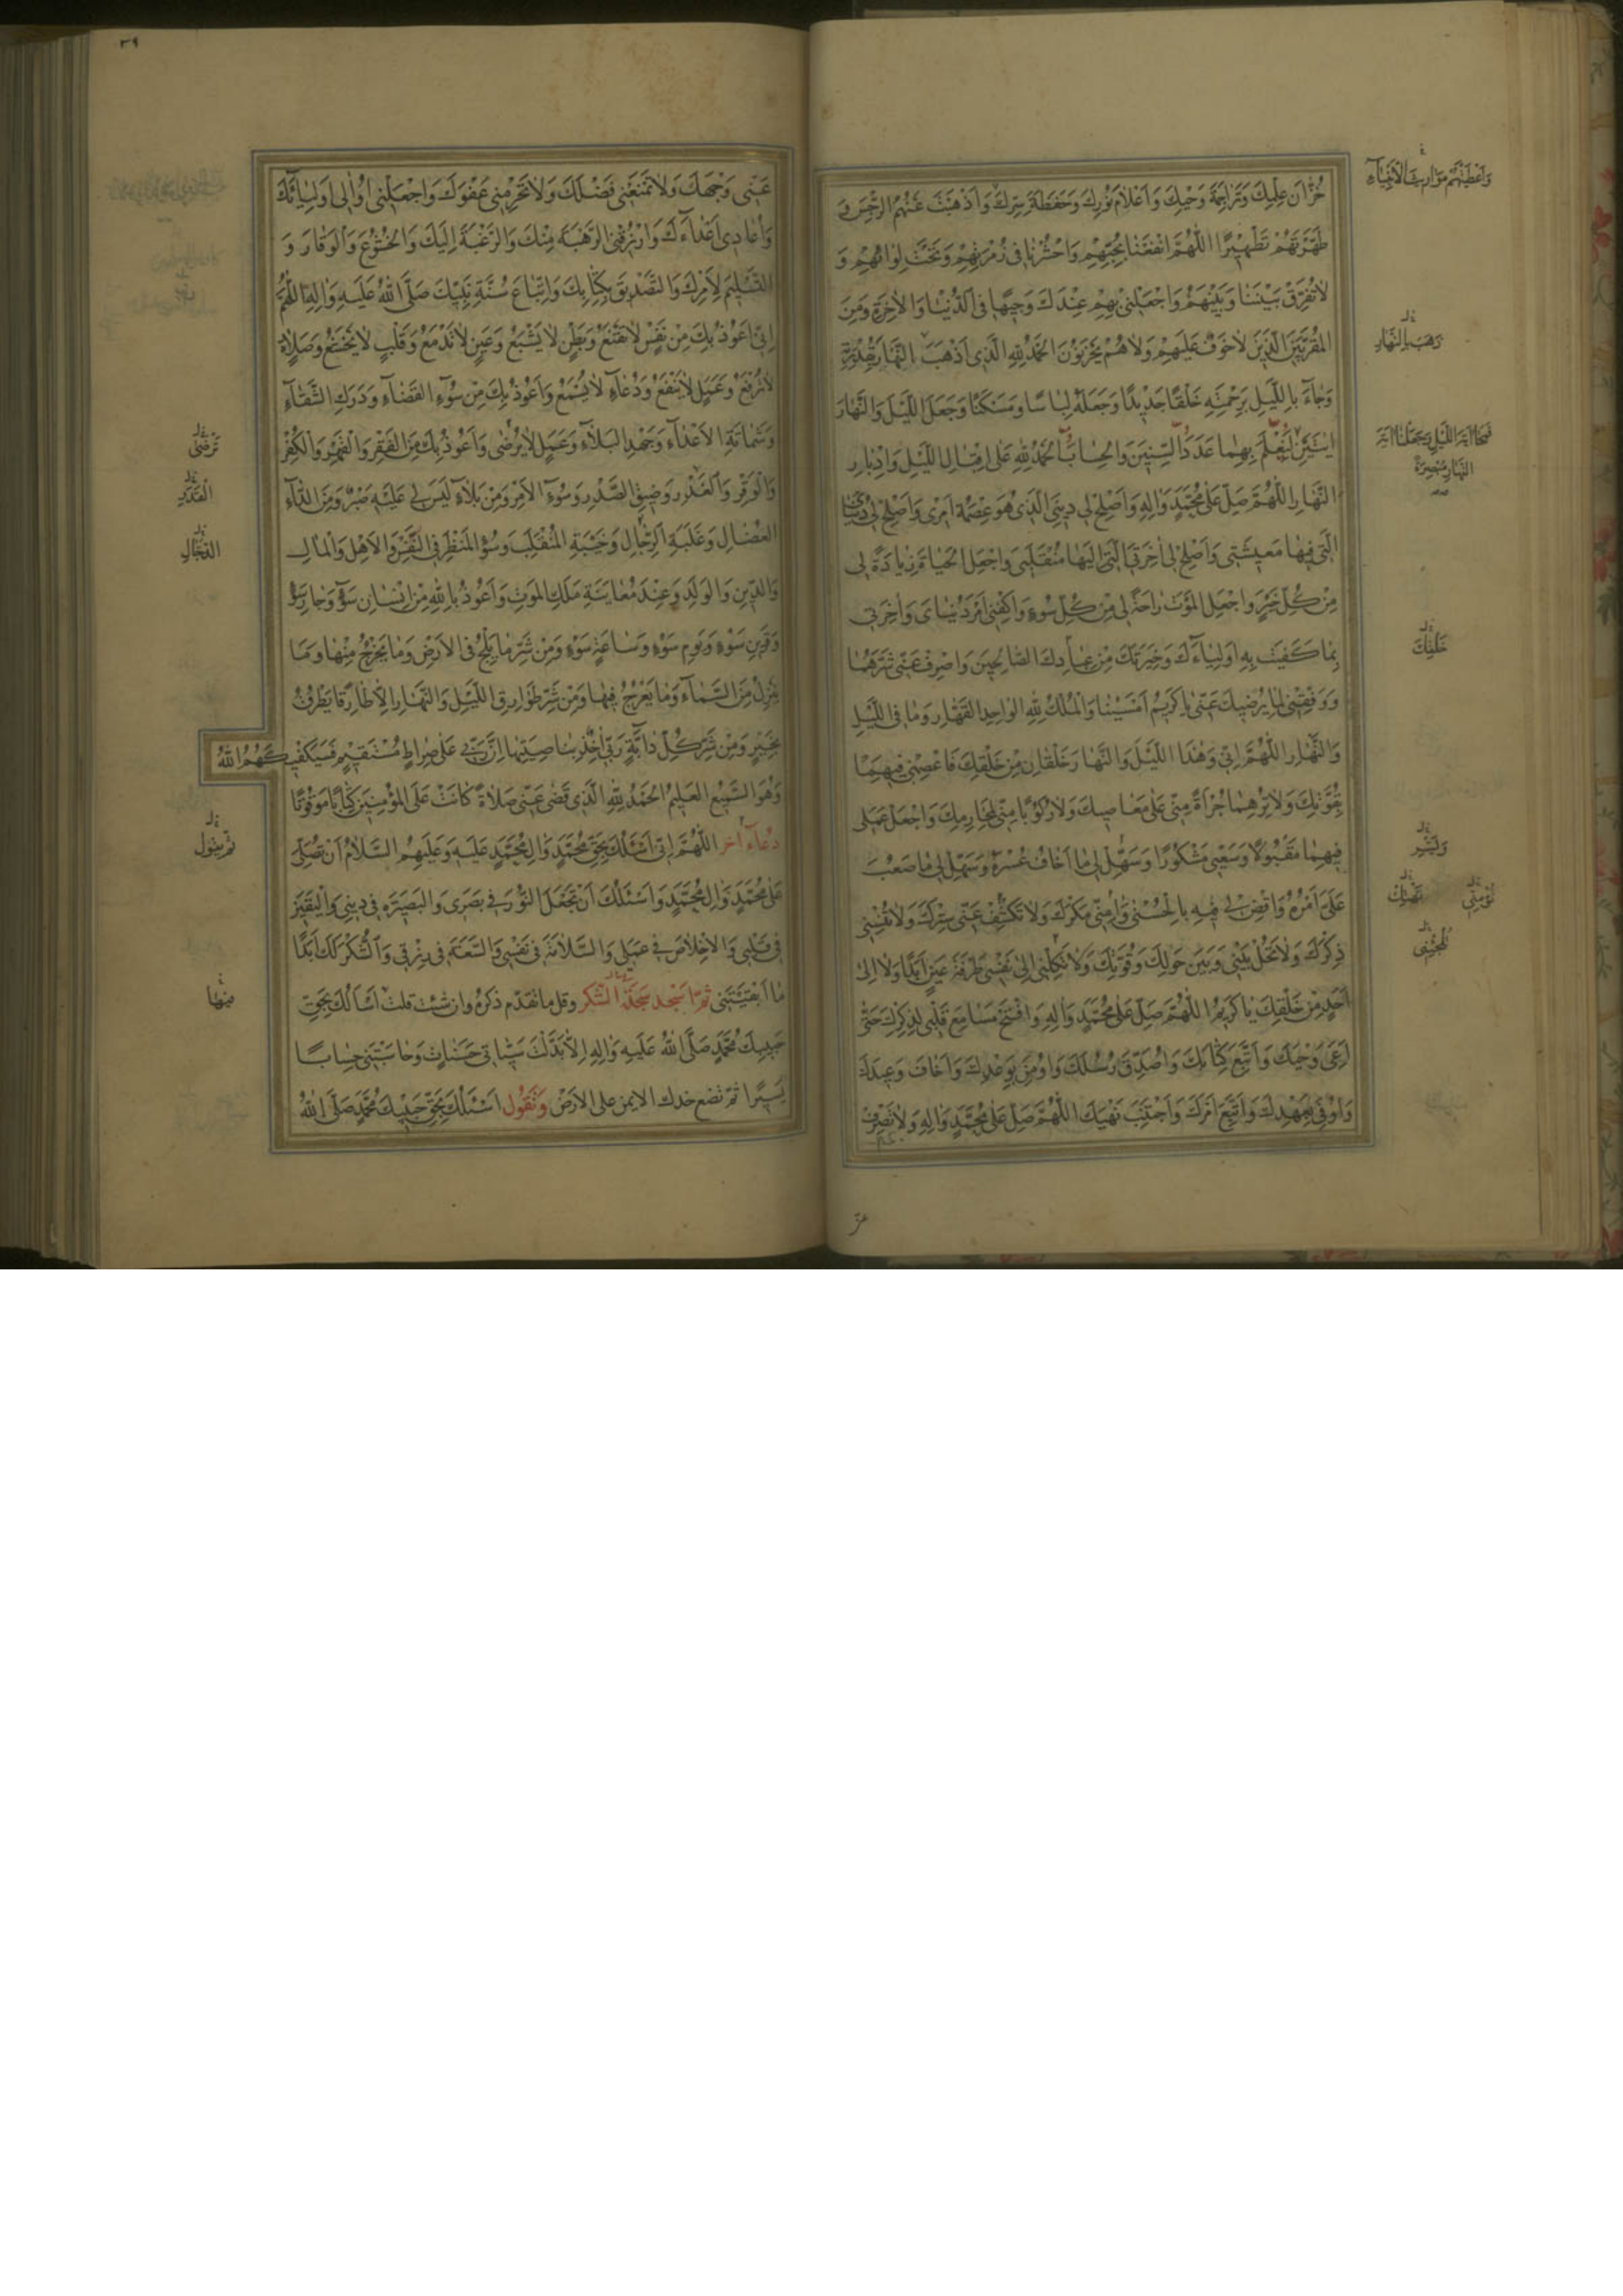 خُزّانَ عِلْمِكَ وَتَراجِمَةَ وَحْيِكَ وَاَعْلامَ نُورِكَ وَحَفَظَةَ سِرِّكَ وَاَذْهَبْتَ عَنْهُمُ الرِّجْسَ وَ
طَهَّرْتَهُمْ تَطْهِيرًا اللّهُمَّ انْفَعْنا بِحُبِّهِمْ وَاحْشُرْنا فى زُمْرَتِهِمْ وَتَحْتَ لِوائِهِمْ وَ
لا تُفَرِّقْ بَيْنَنا وَبَيْنَهُمْ وَاجْعَلْنى بِهِمْ عِنْدَكَ وَجِيهًا فى الدُّنْيا وَالآخِرَةِ وَمِنَ
المُقَرَّبِينَ الَّذِينَ لا خَوْفٌ عَلَيْهِمْ وَلا هُمْ يَحْزَنُونَ الحَمْدُ لِلّهِ الَّذى اَذْهَبَ النَّهارَ بِقُدْرَتِهِ
وَجاءَ بِاللَّيْلِ بِرَحْمَتِهِ خَلْقًا جَدِيدًا وَجَعَلَهُ لِباسًا وَمَسْكَنًا وَجَعَلَ اللَّيْلَ وَالنَّهارَ
ايَتَيْنِ لِيُعْلَمَ بِهِما عَدَدُ السِّنِينَ وَالحِسابُ الحَمْدُ لِلّهِ عَلى اِقْبالِ اللَّيْلِ وَاِدْبارِ
النَّهارِ اللّهُمَّ صَلِّ عَلى مُحَمَّدٍ وَالِهِ وَاَصْلِحْ لى دِينِىَ الَّذى هُوَ عِصْمَةُ اَمْرى وَاَصْلِحْ لى دُنْياىَ
الَّتى فِيها مَعِيشَتى وَاَصْلِحْ لى اخِرَتِىَ الَّتى اِلَيْها مُنْقَلَبى وَاجْعَلِ الحَياةَ زِيادَةً لى
مِنْ كُلِّ خَيْرٍ وَاجْعَلِ المَوْتَ راحَةً لى مِنْ كُلِّ سُوءٍ وَاكْفِنى اَمْرَ دُنْياىَ وَاخِرَتى
بِما كَفَيْتَ بِهِ اَوْلِياءَكَ وَخِيَرَتَكَ مِنْ عِبادِكَ الصّالِحِينَ وَاصْرِفْ عَنّى شَرَّهُما
وَوَفِّقْنى لِما يُرْضِيكَ عَنّى يا كَرِيمُ اَمْسَيْنا وَالمُلْكُ لِلّهِ الواحِدِ القَهّارِ وَما فى اللَّيْلِ
وَالنَّهارِ اللّهُمَّ اِنّى وَهذَا اللَّيْلَ وَالنَّهارَ خَلْقانِ مِنْ خَلْقِكَ فَاعْصِمْنى فِيهِما
بِقُوَّتِكَ وَلا تُرِهِما جُرْاَةً مِنّى عَلى مَعاصِيكَ وَلا رُكُوبًا مِنّى لِمَحارِمِكَ وَاجْعَلْ عَمَلى
فِيهِما مَقْبُولًا وَسَعْيى مَشْكُورًا وَسَهِّلْ لى ما اَخافُ عُسْرَهُ وَسَهِّلْ لى ما صَعُبَ
عَلَىَّ اَمْرُهُ وَاقْضِ لى فِيهِ بِالحُسْنى وَآمِنّى مَكْرَكَ وَلا تَكْشِفْ عَنّى سِتْرَكَ وَلا تُنْسِنى
ذِكْرَكَ وَلا تَحُلْ بَيْنى وَبَيْنَ حَوْلِكَ وَقُوَّتِكَ وَلا تَكِلْنى اِلى نَفْسى طَرْفَةَ عَيْنٍ اَبَدًا وَلا اِلى
اَحَدٍ مِنْ خَلْقِكَ يا كَرِيمُ اللّهُمَّ صَلِّ عَلى مُحَمَّدٍ وَالِهِ وَافْتَحْ مَسامِعَ قَلْبى لِذِكْرِكَ حَتّى
اَعِىَ وَحْيَكَ وَاَتَّبِعَ كِتابَكَ وَاُصَدِّقَ رُسُلَكَ وَاُومِنَ بِوَعْدِكَ وَاَخافَ وَعِيدَكَ
وَاُوفِىَ بِعَهْدِكَ وَاَتَّبِعَ اَمْرَكَ وَاَجْتَنِبَ نَهْيَكَ اللّهُمَّ صَلِّ عَلى مُحَمَّدٍ وَالِهِ وَلا تَصْرِفْ
وَاَعْطَيْتَهُمْ مَوارِيثَ الاَنْبِياءِ
ذَهَبَ بِالنَّهارِ
فَمَحا ايَةَ اللَّيْلِ وَجَعَلَ ايَةَ
النَّهارِ مُبْصِرَةً
خَلْقِكَ
وَيَسِّرْ
عَنّى وَجْهَكَ وَلا تَمْنَعْنى فَضْلَكَ وَلا تَحْرِمْنى عَفْوَكَ وَاجْعَلْنى اُوالى اَوْلِياءَكَ
وَاُعادى اَعْداءَكَ وَارْزُقْنى الرَّهْبَةَ مِنْكَ وَالرَّغْبَةَ اِلَيْكَ وَالخُشُوعَ وَالوَقارَ وَ
التَّسْلِيمَ لِاَمْرِكَ وَالتَّصْدِيقَ بِكِتابِكَ وَاتِّباعَ سُنَّةِ نَبِيِّكَ صَلَّى اللهُ عَلَيْهِ وَالِهِ اللّهُمَّ
اِنّى اَعُوذُ بِكَ مِنْ نَفْسٍ لا تَقْنَعُ وَبَطْنٍ لا يَشْبَعُ وَعَيْنٍ لا تَدْمَعُ وَقَلْبٍ لا يَخْشَعُ وَصَلاةٍ
لا تُرْفَعُ وَعَمَلٍ لا يَنْفَعُ وَدُعاءٍ لا يُسْمَعُ وَاَعُوذُ بِكَ مِنْ سُوءِ القَضاءِ وَدَرَكِ الشَّقاءِ
وَشَماتَةِ الاَعْداءِ وَجَهْدِ البَلاءِ وَعَمَلٍ لا يُرْضى وَاَعُوذُ بِكَ مِنَ الفَقْرِ وَالقَهْرِ وَالكُفْرِ
وَالوَقْرِ وَالغَدْرِ وَضِيقِ الصَّدْرِ وَسُوءِ الاَمْرِ وَمِنْ بَلاءٍ لَيْسَ لى عَلَيْهِ صَبْرٌ وَمِنَ الدّاءِ
العُضالِ وَغَلَبَةِ الرِّجالِ وَخَيْبَةِ المُنْقَلَبِ وَسُوءِ المَنْظَرِ فى النَّفْسِ وَالاَهْلِ وَالمالِ
وَالدِّينِ وَالوَلَدِ وَعِنْدَ مُعايَنَةِ مَلَكِ المَوْتِ وَاَعُوذُ بِاللهِ مِنْ اِنْسانِ سَوْءٍ وَجارِ سَوْءٍ
وَقَرِينِ سَوْءٍ وَيَوْمِ سَوْءٍ وَساعَةِ سَوْءٍ وَمِنْ شَرِّ ما يَلِجُ فى الاَرْضِ وَما يَخْرُجُ مِنْها وَما
يَنْزِلُ مِنَ السَّماءِ وَما يَعْرُجُ فِيها وَمِنْ شَرِّ طَوارِقِ اللَّيْلِ وَالنَّهارِ اِلّا طارِقًا يَطْرُقُ
بِخَيْرٍ وَمِنْ شَرِّ كُلِّ دابَّةٍ رَبّى اخِذٌ بِناصِيَتِها اِنَّ رَبّى عَلى صِراطٍ مُسْتَقِيمٍ فَسَيَكْفِيكَهُمُ اللهُ
وَهُوَ السَّمِيعُ العَلِيمُ الحَمْدُ لِلّهِ الَّذى قَضى عَنّى صَلاةً كانَتْ عَلَى المُؤْمِنِينَ كِتابًا مَوْقُوتًا
دُعاء آخر اللّهُمَّ اِنّى اَسْئَلُكَ بِحَقِّ مُحَمَّدٍ وَالِ مُحَمَّدٍ عَلَيْهِ وَعَلَيْهِمُ السَّلامُ اَنْ تُصَلِّىَ
عَلى مُحَمَّدٍ وَالِ مُحَمَّدٍ وَاَسْئَلُكَ اَنْ تَجْعَلَ النُّورَ فى بَصَرى وَالبَصِيرَةَ فى دِينى وَاليَقِينَ
فى قَلْبى وَالاِخْلاصَ فى عَمَلى وَالسَّلامَةَ فى نَفْسى وَالسَّعَةَ فى رِزْقى وَالشُّكْرَ لَكَ اَبَدًا
ما اَبْقَيْتَنى ثمّ اسجد سجدة الشكر وقل ما تقدم ذكره وان شئت قلت اَسْاَلُكَ بِحَقِّ
حَبِيبِكَ مُحَمَّدٍ صَلَّى اللهُ عَلَيْهِ وَالِهِ اِلّا بَدَّلْتَ سَيِّئاتى حَسَناتٍ وَحاسَبْتَنى حِسابًا
يَسِيرًا ثمّ تضع خدك الايمن على الارض وَتَقُول اَسْئَلُكَ بِحَقِّ حَبِيبِكَ مُحَمَّدٍ صَلَّى اللهُ
تَرْضى
القَدَرِ
الدَّجّالِ
ثم يقول
منها
٣٩